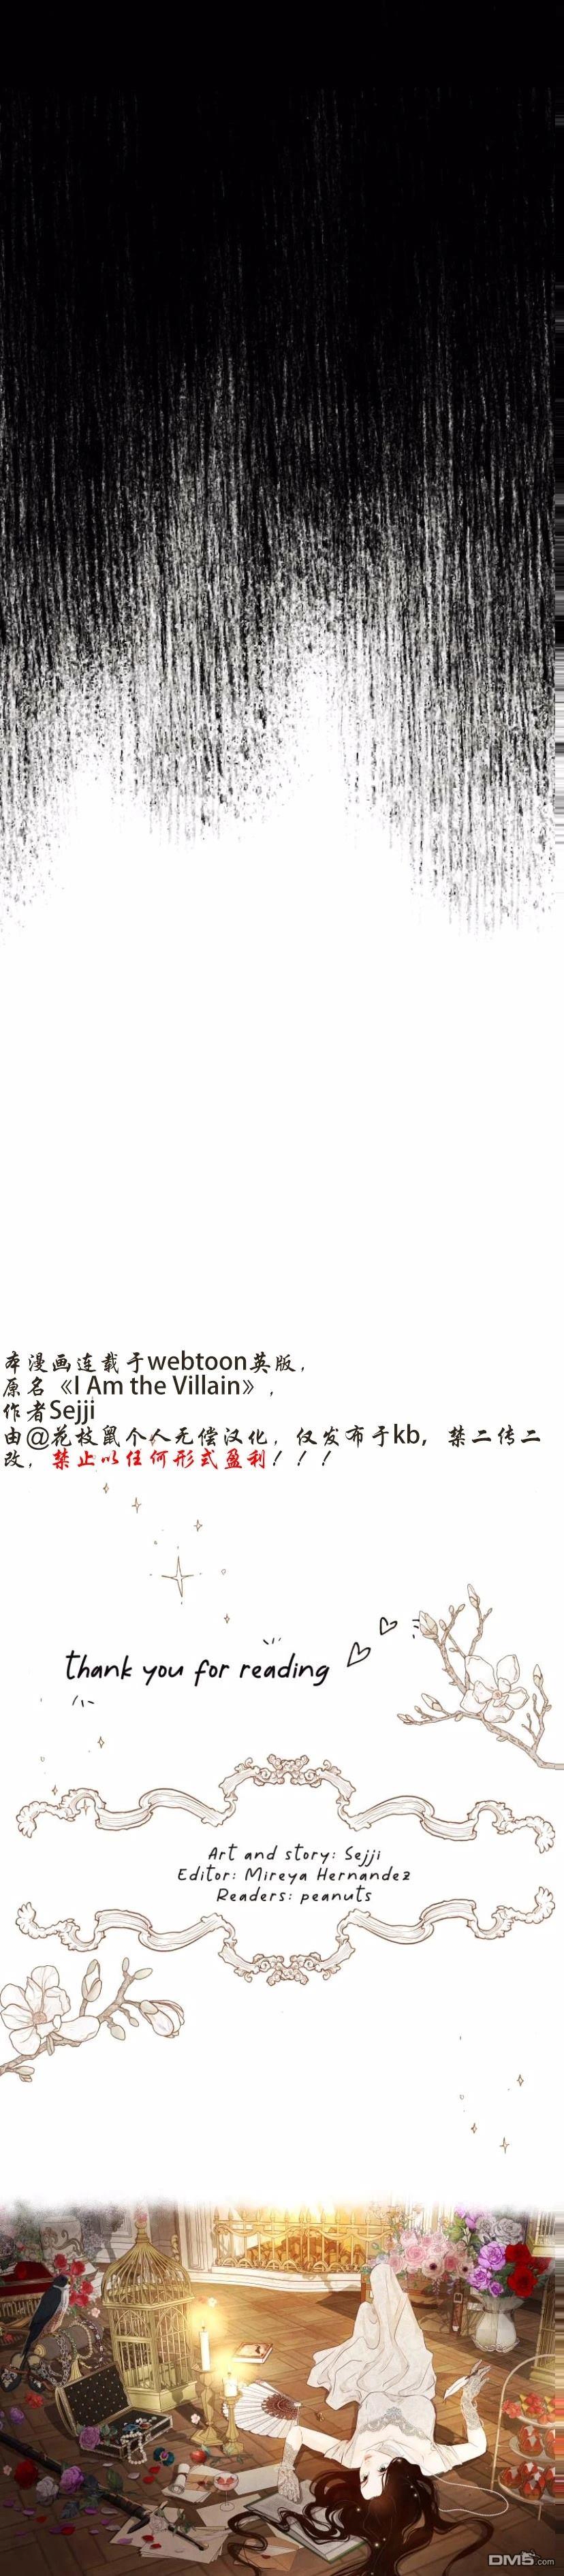 本漫画连载于webtoon英版，
原名《I Am the Villain》，
作者Sejji
由@花枝鼠个人无偿汉化，仅发布于kb，禁二传二
改，禁止以任何形式盈利！！！
thank you for reading
Art and story: Sejji
Editor: Mireya Hernandez
Readers: peanuts
DM5.com